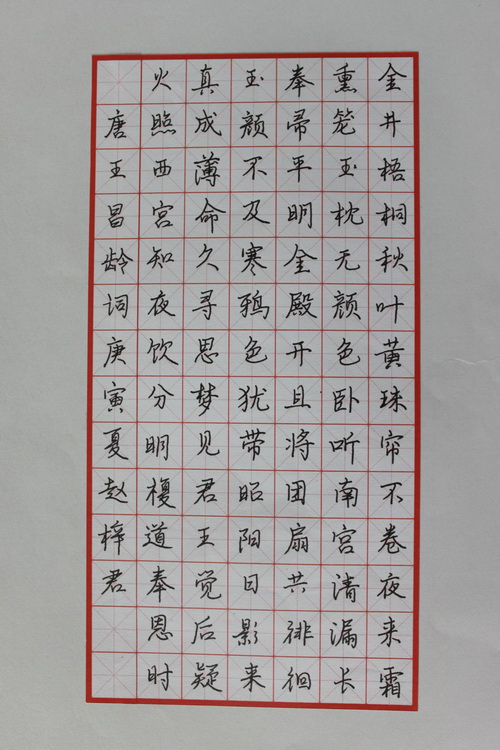 金井梧桐秋叶黄珠帘不卷夜来霜
熏笼玉枕无颜色卧听南宫清漏长
奉帚平明金殿开且将团扇共徘徊
玉颜不及寒鸦色犹带昭阳日影来
真成薄命久寻思梦见君王觉后疑
火照西宫知夜饮分明複道奉恩时
唐王昌龄词庚寅夏赵梓君